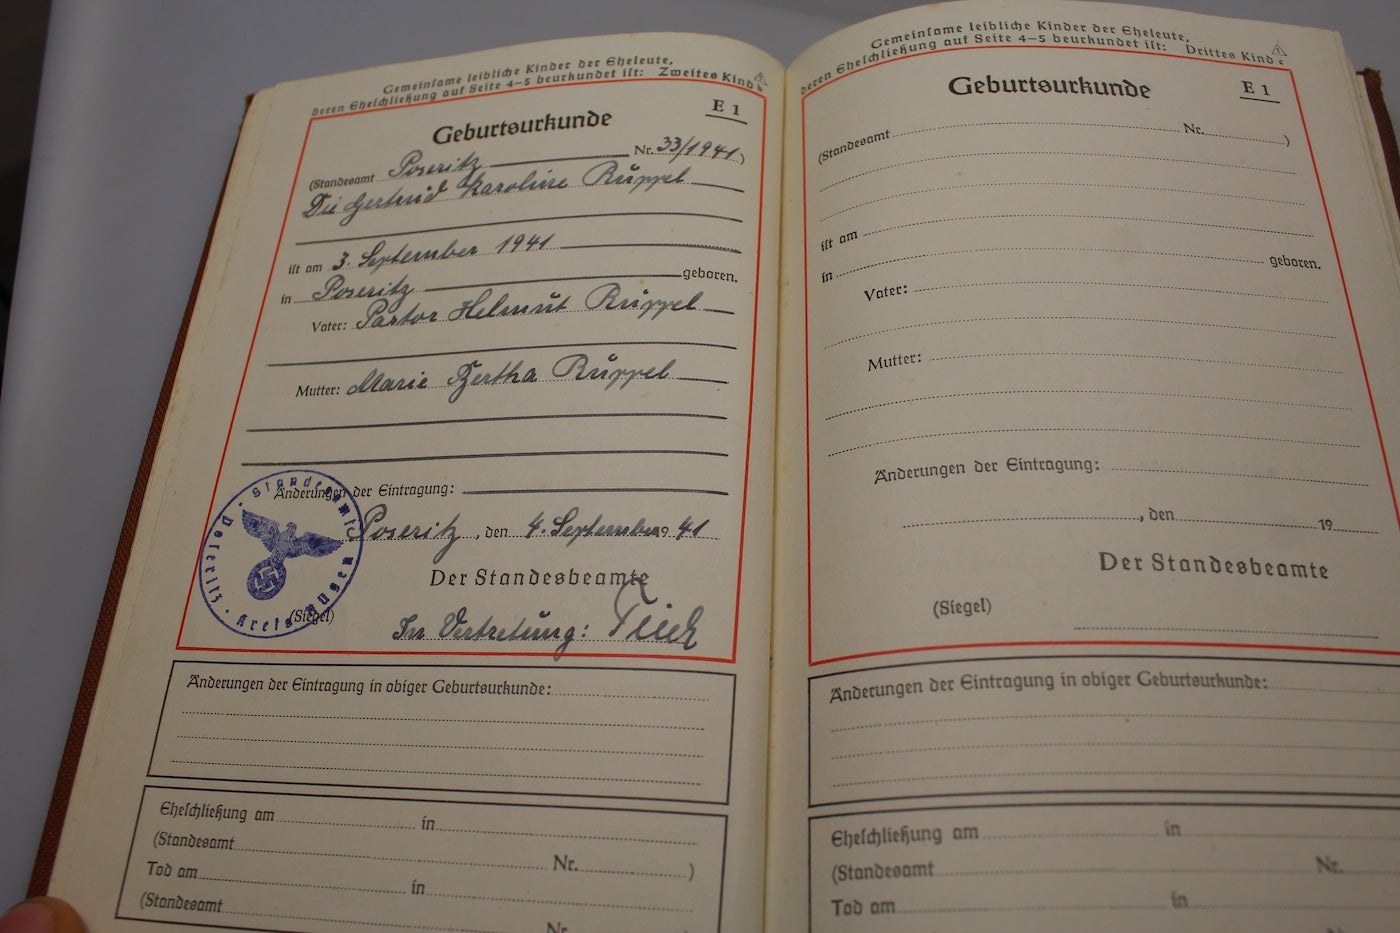 Gemeinsame leibliche Kinder der Eheleute,
deren Eheschließung auf Seite 4–5 beurkundet ist: Zweites Kind b
E 1
Geburtsurkunde
(Standesamt Poseritz Nr. 33/1941)
Die Gertrud Karoline Rüppel
ist am 3. September 1941
in Poseritz geboren.
Vater: Pastor Helmut Rüppel
Mutter: Marie Bertha Rüppel
Änderungen der Eintragung:
Poseritz, den 4. September 1941
Der Standesbeamte
(Siegel)
In Vertretung:
Standesamt Poseritz · Kreis Rügen
Änderungen der Eintragung in obiger Geburtsurkunde:
Eheschließung am in
(Standesamt Nr. )
Tod am in
(Standesamt Nr.
Gemeinsame leibliche Kinder der Eheleute,
deren Eheschließung auf Seite 4–5 beurkundet ist: Drittes Kind c
Geburtsurkunde E 1
(Standesamt Nr. )
ist am
in geboren.
Vater:
Mutter:
Änderungen der Eintragung:
, den 19
Der Standesbeamte
(Siegel)
Änderungen der Eintragung in obiger Geburtsurkunde:
Eheschließung am in
(Standesamt Nr.
Tod am in
(Standesamt Nr.